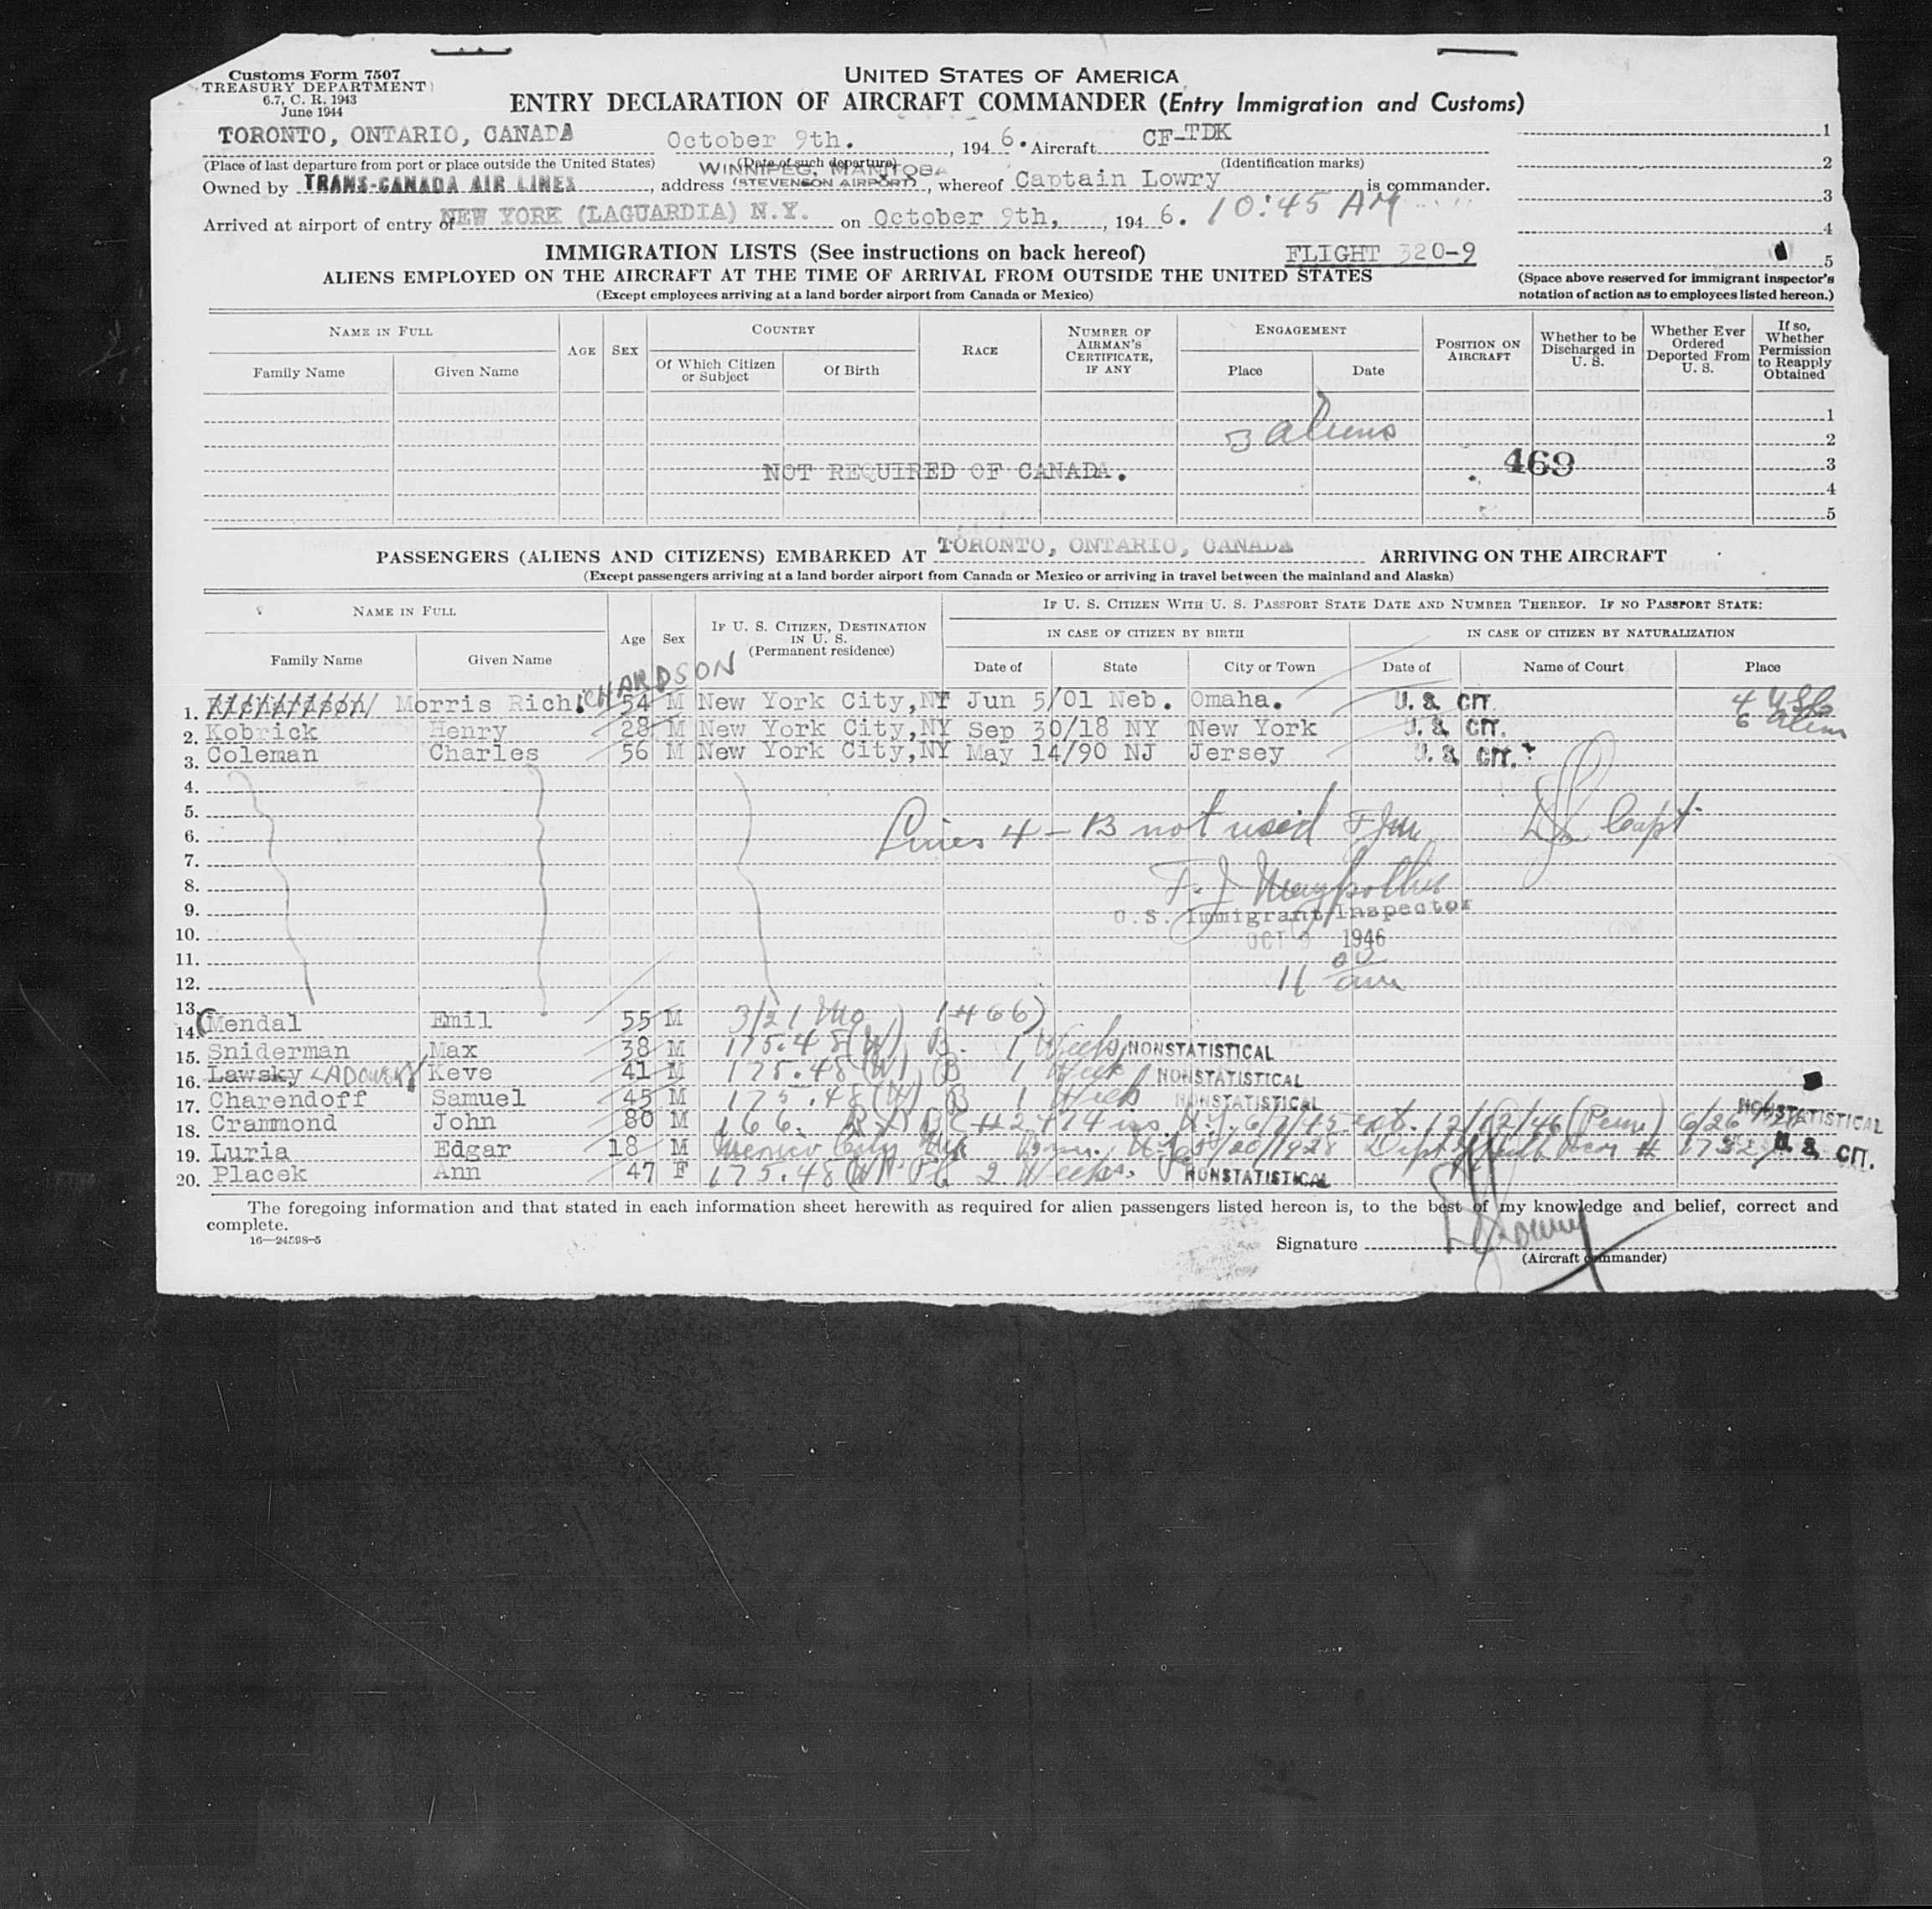 Customs Form 7507
TREASURY DEPARTMENT
6.7, C. R. 1943
June 1944
UNITED STATES OF AMERICA
ENTRY DECLARATION OF AIRCRAFT COMMANDER (Entry Immigration and Customs)
TORONTO, ONTARIO, CANADA October 9th. , 194 6. Aircraft CF-TDK 1
(Place of last departure from port or place outside the United States) (Date of such departure) (Identification marks) 2
WINNIPEG, MANITOBA
Owned by TRANS-CANADA AIR LINES, address (STEVENSON AIRPORT), whereof Captain Lowry is commander. 3
Arrived at airport of entry of NEW YORK (LAGUARDIA) N.Y. on October 9th, , 194 6. 10:45 AM 4
IMMIGRATION LISTS (See instructions on back hereof) FLIGHT 320-9 5
ALIENS EMPLOYED ON THE AIRCRAFT AT THE TIME OF ARRIVAL FROM OUTSIDE THE UNITED STATES
(Except employees arriving at a land border airport from Canada or Mexico)
(Space above reserved for immigrant inspector's notation of action as to employees listed hereon.)
NAME IN FULL AGE SEX COUNTRY RACE NUMBER OF AIRMAN'S CERTIFICATE, IF ANY ENGAGEMENT POSITION ON AIRCRAFT Whether to be Discharged in U. S. Whether Ever Ordered Deported From U. S. If so, Whether Permission to Reapply Obtained
Family Name Given Name Of Which Citizen or Subject Of Birth Place Date
1
aliens 2
NOT REQUIRED OF CANADA. 469 3
4
5
PASSENGERS (ALIENS AND CITIZENS) EMBARKED AT TORONTO, ONTARIO, CANADA ARRIVING ON THE AIRCRAFT
(Except passengers arriving at a land border airport from Canada or Mexico or arriving in travel between the mainland and Alaska)
NAME IN FULL Age Sex IF U. S. CITIZEN, DESTINATION IN U. S. (Permanent residence) IF U. S. CITIZEN WITH U. S. PASSPORT STATE DATE AND NUMBER THEREOF. IF NO PASSPORT STATE:
IN CASE OF CITIZEN BY BIRTH IN CASE OF CITIZEN BY NATURALIZATION
Family Name Given Name Date of State City or Town Date of Name of Court Place
1. Richardson Morris Rich. CHARDSON 54 M New York City,NY Jun 5/01 Neb. Omaha. U. S. CIT. 4 USC
2. Kobrick Henry 28 M New York City,NY Sep 30/18 NY New York U. S. CIT. 6 alien
3. Coleman Charles 56 M New York City,NY May 14/90 NJ Jersey U. S. CIT.
4.
5.
6. Lines 4 - 13 not used Capt
7.
8. F. J.
9. U.S. Immigrant Inspector
10. OCT 9 1946
11.
12. 11 00 am
13.
14. Mendal Emil 55 M 3/21 1466)
15. Sniderman Max 38 M 175.48(W) B. 1 Week NONSTATISTICAL
16. Lawsky LADOWSKY Keve 41 M 175.48(W) B 1 Week NONSTATISTICAL
17. Charendoff Samuel 45 M 175.48(W) B 1 Week NONSTATISTICAL
18. Crammond John 80 M 166. #2474 iss. 6/7/45 12/12/46 (Perm.) 6/26 NONSTATISTICAL
19. Luria Edgar 18 M Mexico City Mex 1928 # U. S. CIT.
20. Placek Ann 47 F 175.48(W) Pl 2 Weeks. NONSTATISTICAL
The foregoing information and that stated in each information sheet herewith as required for alien passengers listed hereon is, to the best of my knowledge and belief, correct and
complete.
16—24598-5
Signature Lowry
(Aircraft commander)